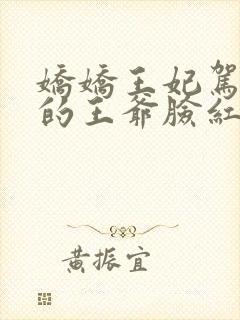 嬌嬌王妃駕
的王爺臉紅
黃振宜